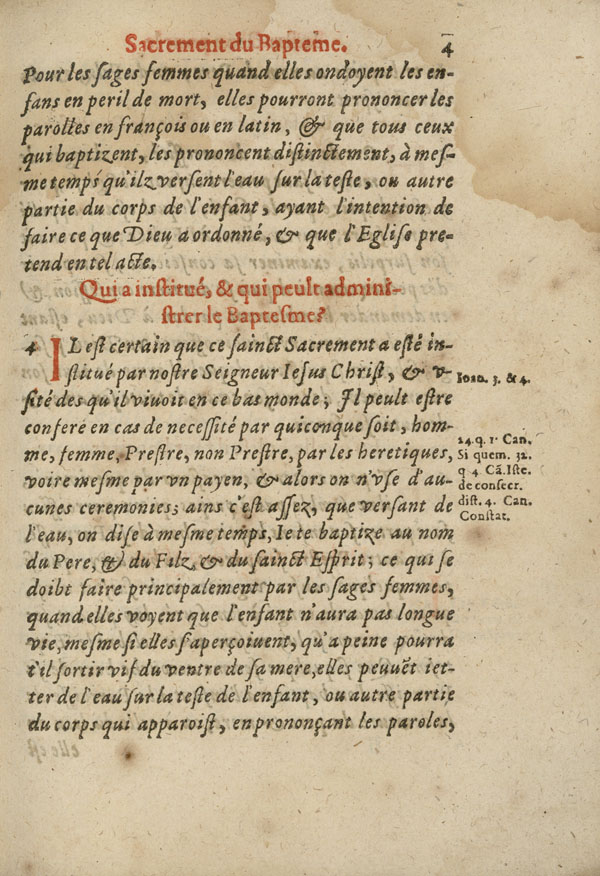 Sacrement du Bapteme. 4
Pour les sages femmes quand elles ondoyent les en-
fans en peril de mort, elles pourront prononcer les
parolles en françois ou en latin, & que tous ceux
qui baptizent, les prononcent distinctement, à mes-
me temps qu'ilz versent l'eau sur la teste, ou autre
partie du corps de l'enfant, ayant l'intention de
faire ce que Dieu a ordonné, & que l'Eglise pre-
tend en tel acte.
Qui a institué, & qui peult admini-
strer le Baptesme?
4 IL est certain que ce sainct Sacrement a esté in-
stitué par nostre Seigneur Iesus Christ, & v-
sité des qu'il viuoit en ce bas monde; Il peult estre
Ioan. 3. & 4.
conferé en cas de necessité par quiconque soit, hom-
me, femme, Prestre, non Prestre, par les heretiques,
voire mesme par vn payen, & alors on n'vse d'au-
cunes ceremonies; ains c'est assez, que versant de
l'eau, on dise à mesme temps, Ie te baptize au nom
24. q. 1. Can.
Si quem. 32.
q 4 Cā. Iste.
de consecr.
dist. 4. Can.
Constat.
du Pere, & du Filz, & du sainct Esprit; ce qui se
doibt faire principalement par les sages femmes,
quand elles voyent que l'enfant n'aura pas longue
vie, mesme si elles s'aperçoiuent, qu'a peine pourra
t'il sortir vif du ventre de sa mere, elles peuuēt iet-
ter de l'eau sur la teste de l'enfant, ou autre partie
du corps qui apparoist, en prononçant les paroles,